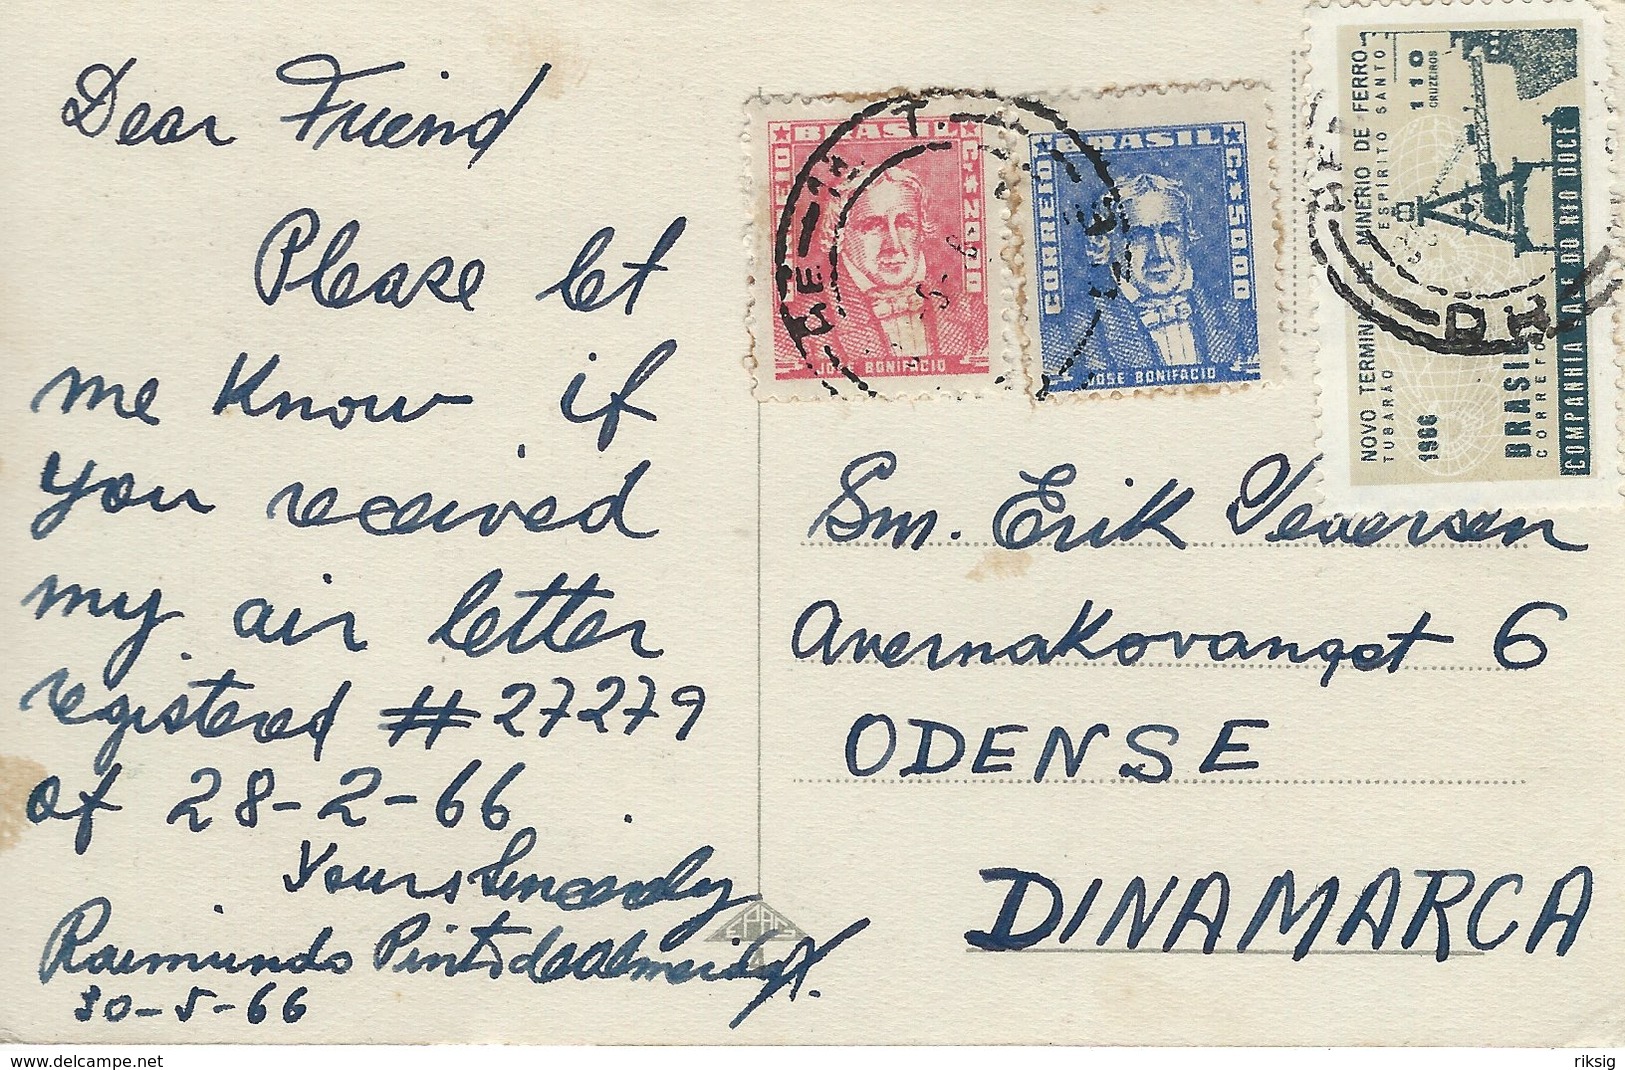 Dear Friend
Please let
me know if
you received
my air letter
registered # 27279
of 28-2-66
Yours Sincerely
Raimundo Pinto de Almeida
30-5-66
BRASIL
CORREIO
Cr$ 2$00
JOSÉ BONIFACIO
BRASIL
CORREIO
Cr$ 50.00
JOSE BONIFACIO
NOVO TERMINAL DE MINERIO DE FERRO
TUBARÃO ESPIRITO SANTO
110
CRUZEIROS
1966
BRASIL
CORREIO
COMPANHIA VALE DO RIO DOCE
Sm. Erik Pedersen
Avernakovanget 6
ODENSE
DINAMARCA
www.delcampe.net
riksig